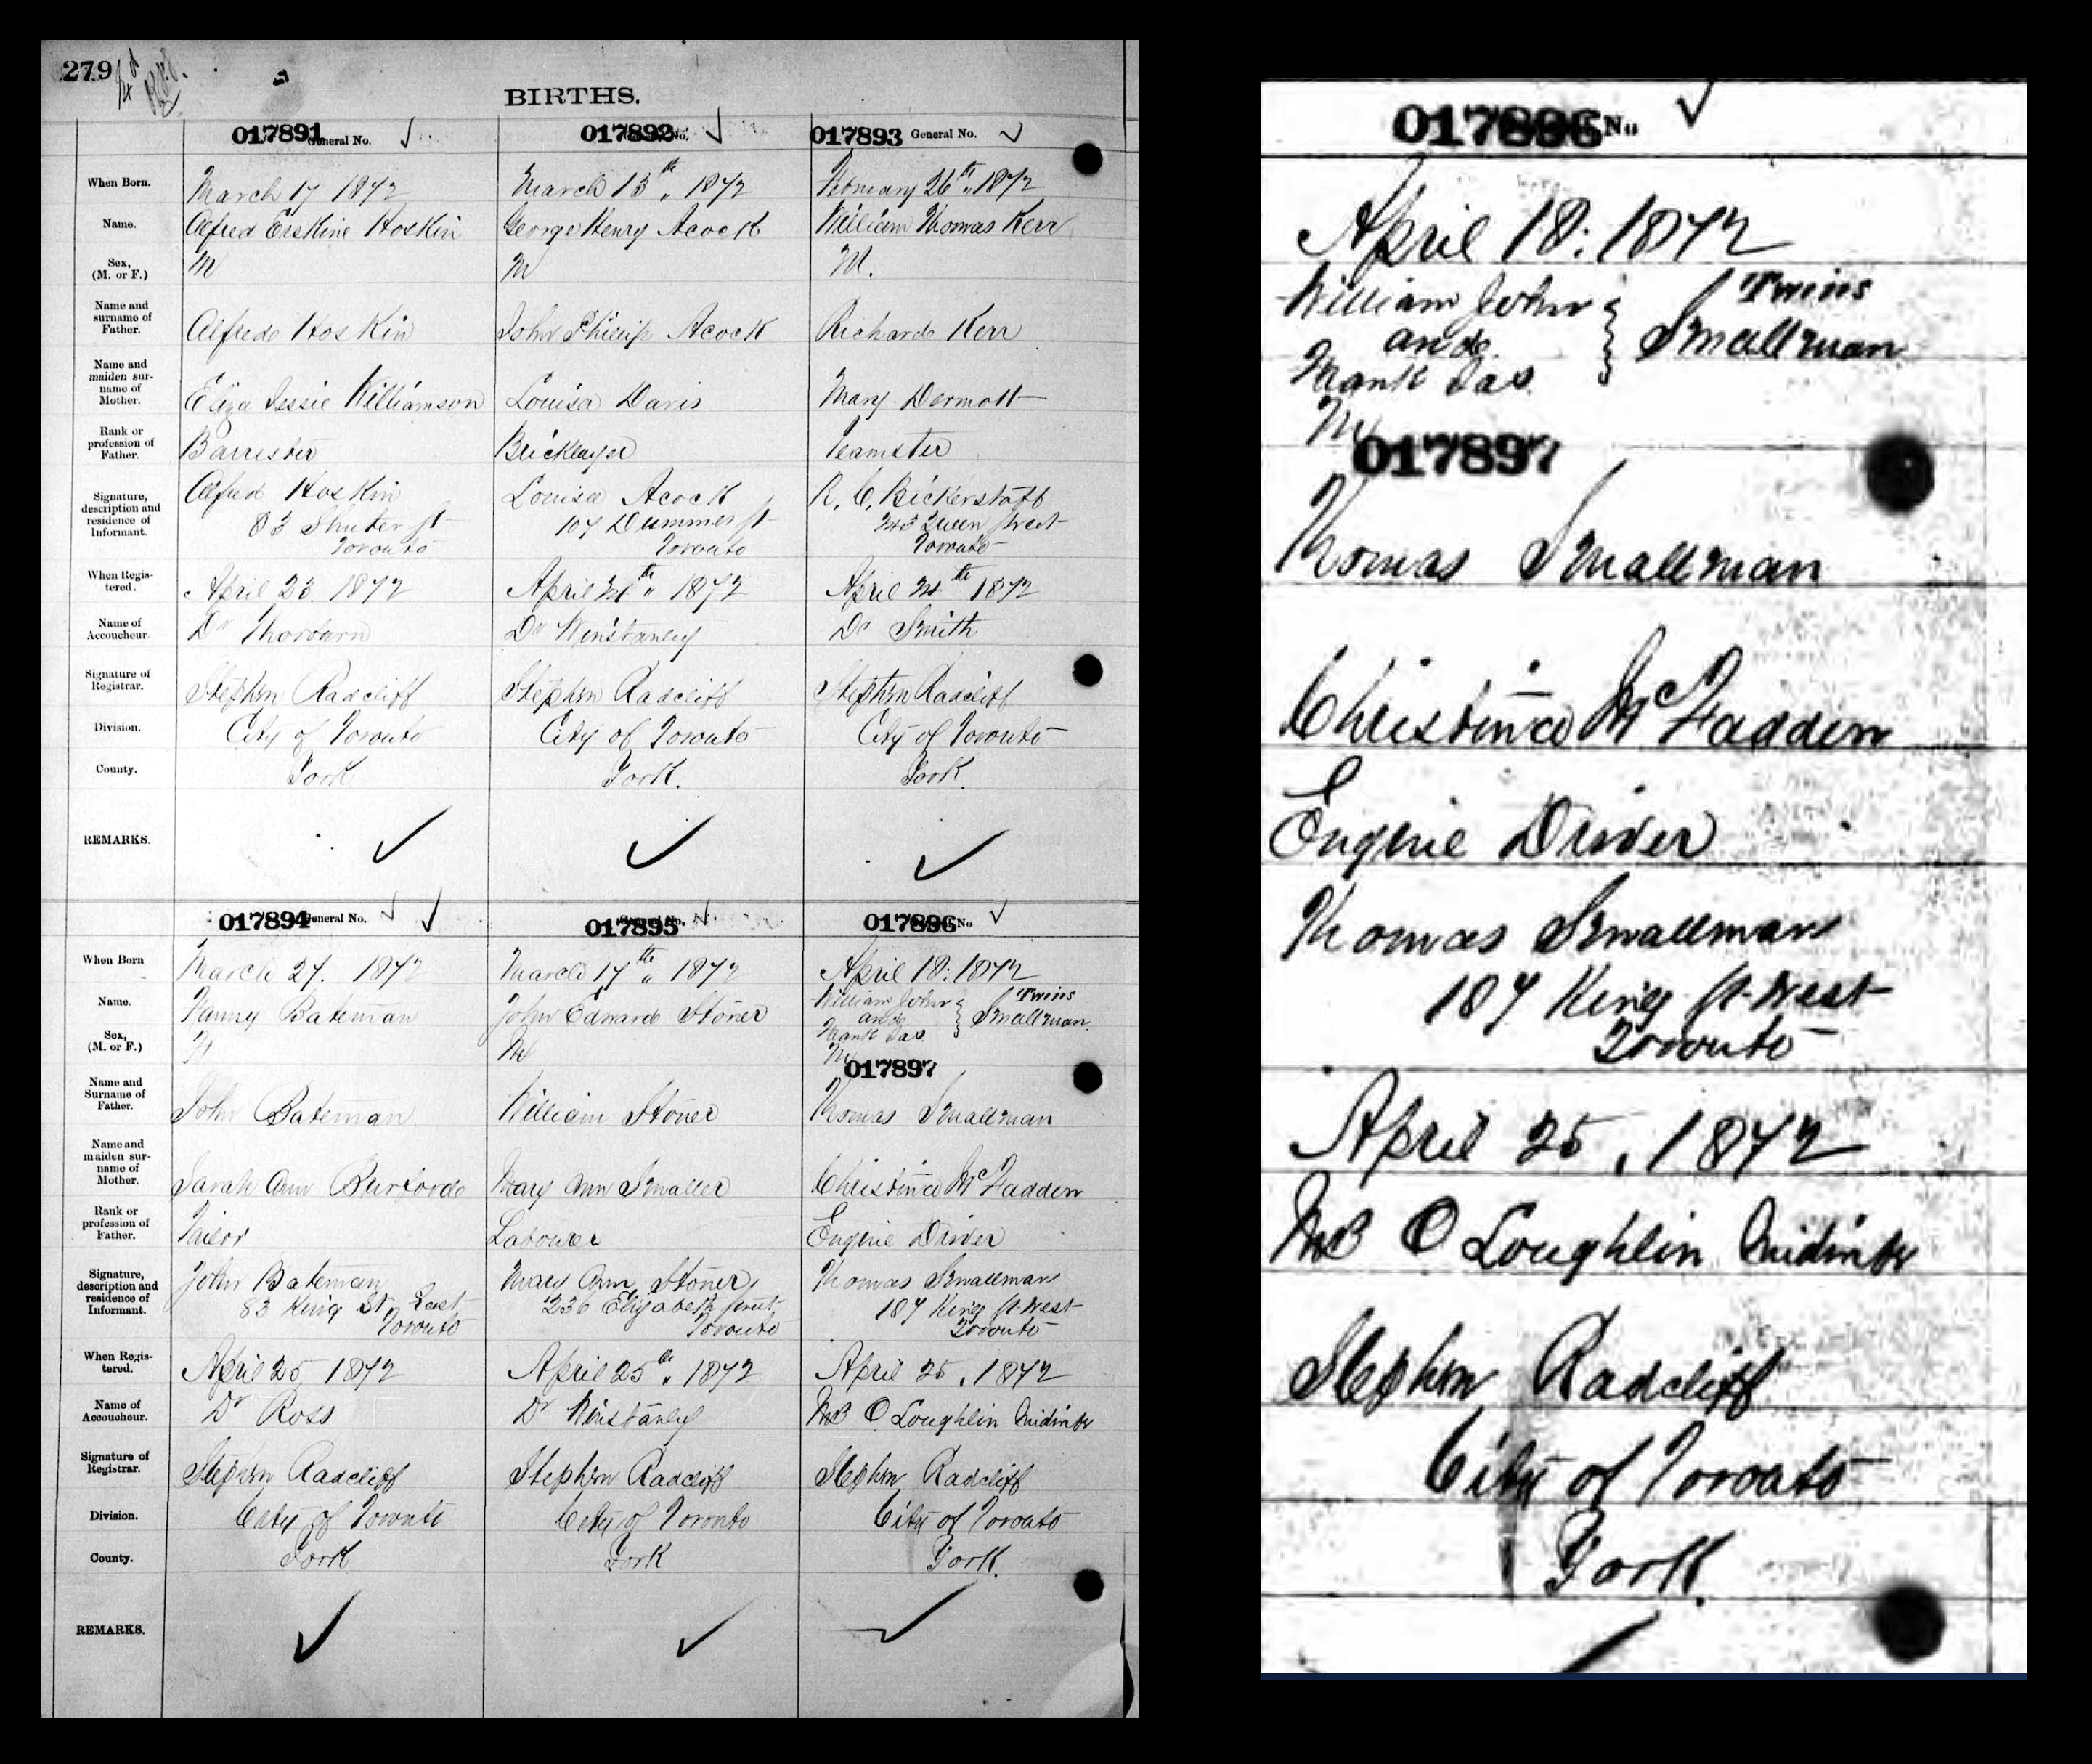 279
BIRTHS.
017891 General No.
017892 No.
017893 General No.
When Born.
March 17 1872
March 13th „ 1872
February 26th „ 1872
Name.
Alfred Erskine Hoskin
George Henry Acock
William Thomas Kerr
Sex, (M. or F.)
M
M
M.
Name and surname of Father.
Alfred Hoskin
John Phillip Acock
Richard Kerr
Name and maiden sur-name of Mother.
Eliza Jessie Williamson
Louisa Davis
Mary Dermott
Rank or profession of Father.
Barrister
Bricklayer
Teamster
Signature, description and residence of Informant.
Alfred Hoskin
83 Shuter St
Toronto
Louisa Acock
107 Dummer St
Toronto
R. C. Bickerstaff
243 Queen Street
Toronto
When Regis-tered.
April 23. 1872
April 24th „ 1872
April 24th 1872
Name of Accoucheur.
Dr Thorburn
Dr Winstanley
Dr Smith
Signature of Registrar.
Stephen Radcliff
Stephen Radcliff
Stephen Radcliff
Division.
City of Toronto
City of Toronto
City of Toronto
County.
York
York.
York.
REMARKS.
017894 General No.
017895
017896 No
When Born
March 27. 1872
March 17th „ 1872
April 18: 1872
Name.
Fanny Bateman
John Edward Stoner
William John
and
Frank Jas.
Twins
Smallman
Sex, (M. or F.)
F
M
M
017897
Name and Surname of Father.
John Bateman
William Stoner
Thomas Smallman
Name and maiden sur-name of Mother.
Sarah Ann Burford
Mary Ann Smaller
Christina McFadden
Rank or profession of Father.
Tailor
Labourer
Engine Driver
Signature, description and residence of Informant.
John Bateman
83 King St East
Toronto
Mary Ann Stoner
236 Elizabeth Street
Toronto
Thomas Smallman
187 King St West
Toronto
When Regis-tered.
April 25 1872
April 25th „ 1872
April 25, 1872
Name of Accoucheur.
Dr Ross
Dr Winstanley
O Loughlin Midwife
Signature of Registrar.
Stephen Radcliff
Stephen Radcliff
Stephen Radcliff
Division.
City of Toronto
City of Toronto
City of Toronto
County.
York
York
York.
REMARKS.
017896 No
April 18: 1872
William John
and
Frank Jas.
Twins
Smallman
M
017897
Thomas Smallman
Christina McFadden
Engine Driver
Thomas Smallman
187 King St West
Toronto
April 25, 1872
O Loughlin Midwife
Stephen Radcliff
City of Toronto
York.